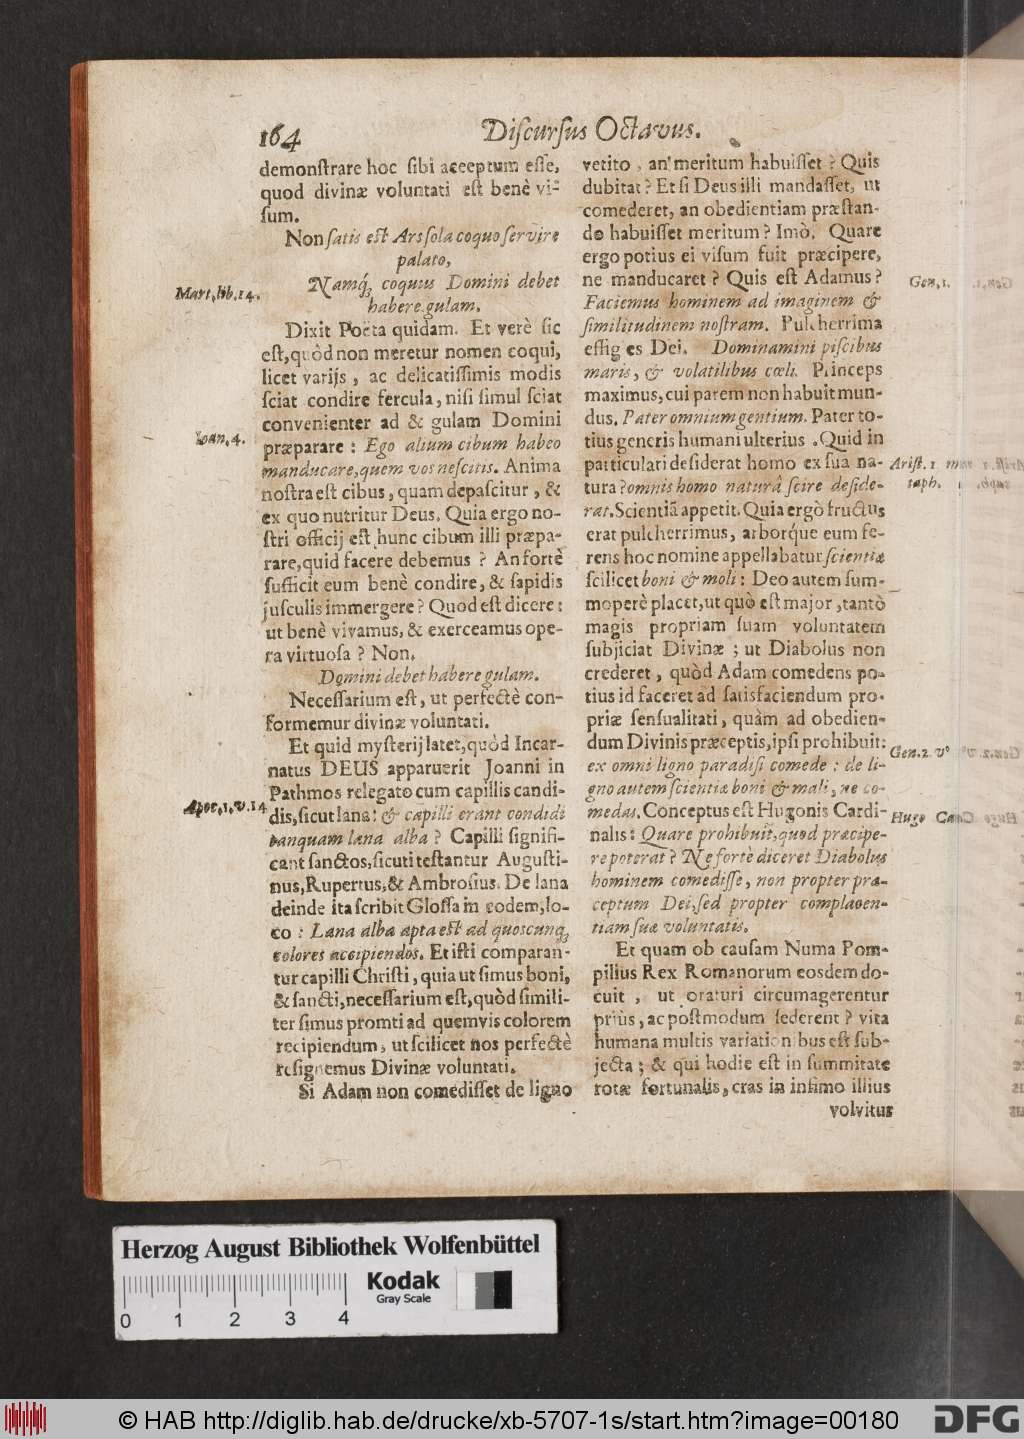 164 Diſcurſus Octavus.
demonſtrare hoc ſibi acceptum eſſe,
quod divinæ voluntati eſt benè vi-
ſum.
Non ſatis eſt Ars ſola coquo ſervire
palato,
Namq́ꝫ coquus Domini debet
habere gulam.
Mart, lib. 14.
Dixit Poëta quidam. Et verè ſic
eſt, quòd non meretur nomen coqui,
licet varijs, ac delicatiſſimis modis
ſciat condire fercula, niſi ſimul ſciat
convenienter ad & gulam Domini
præparare: Ego alium cibum habeo
manducare, quem vos neſcitis. Anima
Ioan. 4.
noſtra eſt cibus, quam depaſcitur, &
ex quo nutritur Deus. Quia ergo no-
ſtri officij eſt hunc cibum illi præpa-
rare, quid facere debemus? An fortè
ſufficit eum benè condire, & ſapidis
juſculis immergere? Quod eſt dicere:
ut benè vivamus, & exerceamus ope-
ra virtuoſa? Non.
Domini debet habere gulam.
Neceſſarium eſt, ut perfectè con-
formemur divinæ voluntati.
Et quid myſterij latet, quòd Incar-
natus DEUS apparuerit Joanni in
Pathmos relegato cum capillis candi-
dis, ſicut lana: & capilli erant condidi
Apoc. 1, v. 14
tanquam lana alba? Capilli ſignifi-
cant ſanctos, ſicuti teſtantur Auguſti-
nus, Rupertus, & Ambroſius. De lana
deinde ita ſcribit Gloſſa in eodem, lo-
co: Lana alba apta eſt ad quoscunqꝫ
colores accipiendos. Et iſti comparan-
tur capilli Chriſti, quia ut ſimus boni,
& ſancti, neceſſarium eſt, quòd ſimili-
ter ſimus promti ad quemvis colorem
recipiendum, ut ſcilicet nos perfectè
reſignemus Divinæ voluntati.
Si Adam non comediſſet de ligno
vetito, an meritum habuiſſet? Quis
dubitat? Et ſi Deus illi mandaſſet, ut
comederet, an obedientiam præſtan-
do habuiſſet meritum? Imò. Quare
ergo potius ei viſum fuit præcipere,
ne manducaret? Quis eſt Adamus?
Gen, 1.
Faciemus hominem ad imaginem &
ſimilitudinem noſtram. Pulcherrima
effigies Dei. Dominamini piſcibus
maris, & volatilibus cœli. Princeps
maximus, cui parem non habuit mun-
dus. Pater omnium gentium. Pater to-
tius generis humani ulterius. Quid in
particulari deſiderat homo ex ſua na-
Ariſt. 1
taph.
tura? omnis homo naturâ ſcire deſide-
rat. Scientiā appetit. Quia ergò fructus
erat pulcherrimus, arborq́ue eum fe-
rens hoc nomine appellabatur ſcientiæ
ſcilicet boni & moli: Deo autem ſum-
moperè placet, ut quò eſt major, tantò
magis propriam ſuam voluntatem
ſubjiciat Divinæ; ut Diabolus non
crederet, quòd Adam comedens po-
tius id faceret ad ſatisfaciendum pro-
priæ ſenſualitati, quàm ad obedien-
dum Divinis præceptis, ipſi prohibuit:
Gen. 2. v
ex omni ligno paradiſi comede: de li-
gno autem ſcientiæ boni & mali, ne co-
medas. Conceptus eſt Hugonis Cardi-
Hugo Card.
nalis: Quare prohibuit, quod præcipe-
re poterat? Ne fortè diceret Diabolus
hominem comediſſe, non propter præ-
ceptum Dei, ſed propter complacen-
tiam ſuæ voluntatis.
Et quam ob cauſam Numa Pom-
pilius Rex Romanorum eosdem do-
cuit, ut oraturi circumagerentur
priùs, ac poſtmodum ſederent? vita
humana multis variationibus eſt ſub-
jecta; & qui hodie eſt in ſummitate
rotæ fortunalis, cras in infimo illius
volvitus
Herzog August Bibliothek Wolfenbüttel
Kodak
Gray Scale
0 1 2 3 4
© HAB http://diglib.hab.de/drucke/xb-5707-1s/start.htm?image=00180
DFG